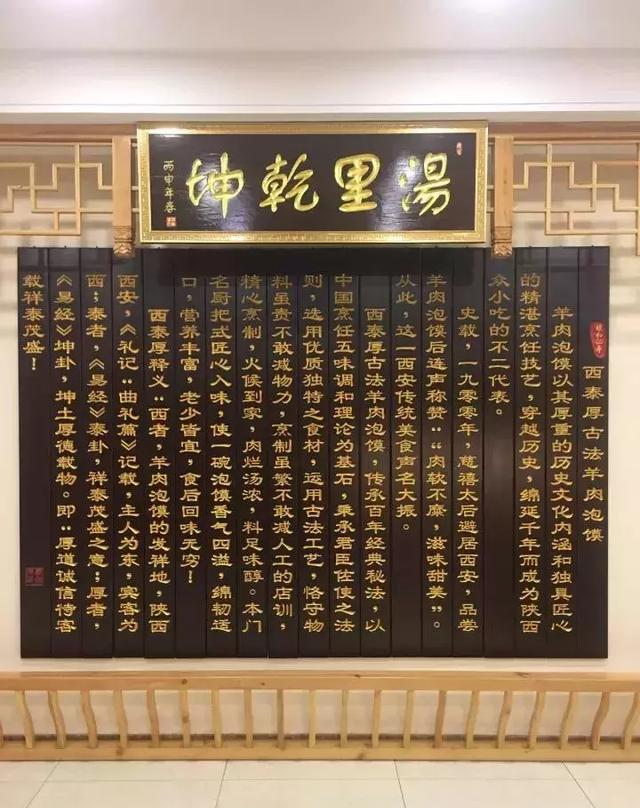 湯里乾坤
丙申年春
西泰厚古法羊肉泡馍
羊肉泡馍以其厚重的历史文化内涵和独具匠心
的精湛烹饪技艺，穿越历史，绵延千年而成为陕西
众小吃的不二代表。
史载，一九零零年，慈禧太后避居西安，品尝
羊肉泡馍后连声称赞““肉软不糜，滋味甜美”。
从此，这一西安传统美食声名大振。
西泰厚古法羊肉泡馍，传承百年经典秘法，以
中国烹饪五味调和理论为基石，秉承君臣佐使之法
则，选用优质独特之食材，运用古法工艺，恪守物
料虽贵不敢减物力，烹制虽繁不敢减人工的店训，
精心烹制，火候到家，肉烂汤浓，料足味醇。本门
名厨把式匠心入味，使一碗泡馍香气四溢，绵韧适
口，营养丰富，老少皆宜，食后回味无穷！
西泰厚释义“西者，羊肉泡馍的发祥地，陕西
西安，《礼记“曲礼篇》记载，主人为东，宾客为
西；泰者，《易经》泰卦，祥泰茂盛之意；厚者，
《易经》坤卦，坤土厚德载物。即“厚道诚信待客
载祥泰茂盛！